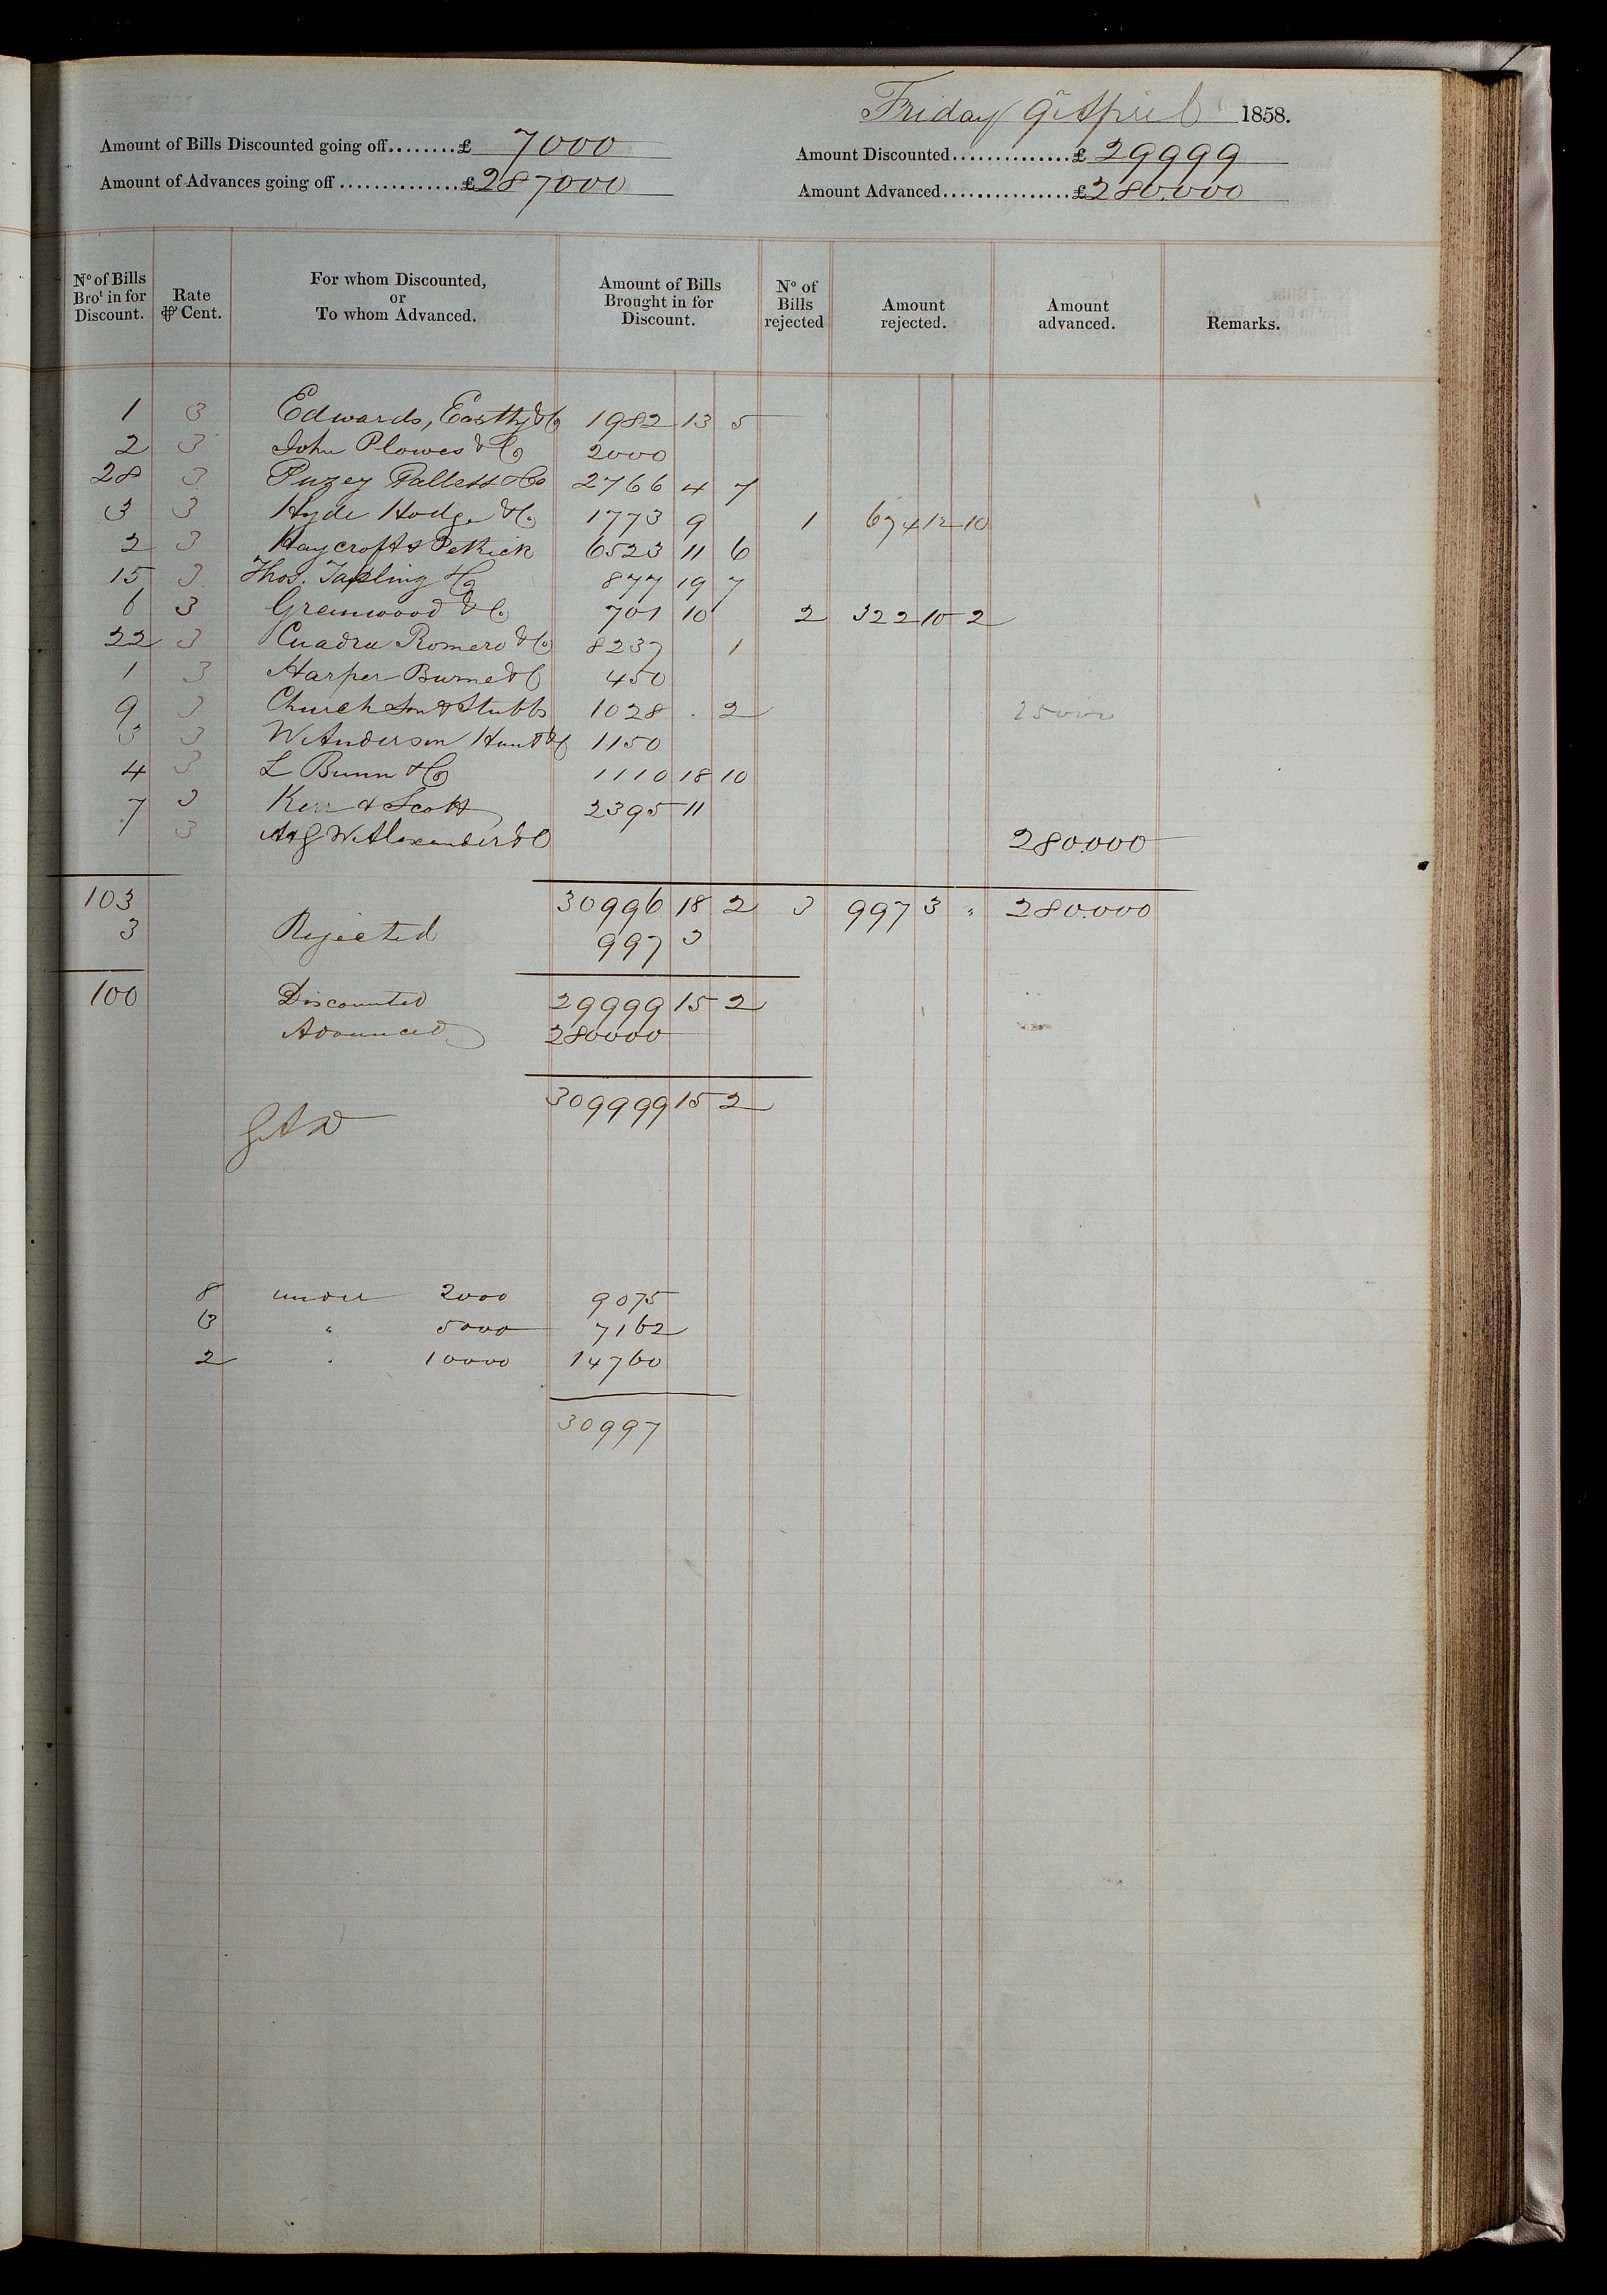 Friday 9th April 1858.
Amount of Bills Discounted going off........£ 7000
Amount Discounted...............£ 29999
Amount of Advances going off...............£ 287000
Amount Advanced................£ 280.000
No of Bills Brot in for Discount. Rate ⅌ Cent. For whom Discounted, or To whom Advanced. Amount of Bills Brought in for Discount. No of Bills rejected Amount rejected. Amount advanced. Remarks.
1 3 Edwards, Eastty & Co 1982 13 5
2 3 John Plowes & Co 2000
28 3 Puzey Pallett & Co 2766 4 7
3 3 Hyde Hodge & Co 1773 9 1 674 12 10
2 3 Haycroft & Pethick 6523 11 6
15 3 Thos. Tapling & Co 877 19 7
6 3 Greenwood & Co 701 10 2 322 10 2
22 3 Cuadra Romero & Co 8237 1
1 3 Harper Burne & Co 450
9 3 Church Son & Stubbs 1028 . 2 25000
3 3 W Anderson Hunt & Co 1150
4 3 L Bunn & Co 1110 18 10
7 3 Kerr & Scott 2395 11
3 A & G W Alexander & Co 280.000
103 30996 18 2 3 997 3 " 280.000
3 Rejected 997 3
100 Discounted 29999 15 2
Advanced 280000
309999 15 2
8 under 2000 9075
3 " 5000 7162
2 . 10000 14760
30997